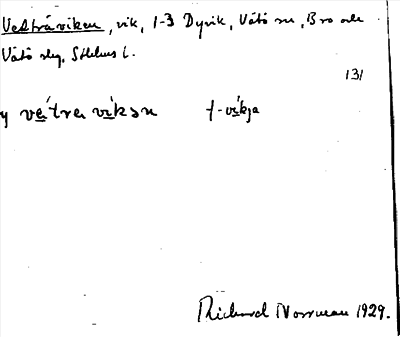 Vestråviken, vik, 1-3 Dyvik, Vätö sn, Bro och
Vätö slg, Sthlms l.
131
vätra vikən †-vikja
Richard Norrman 1929.